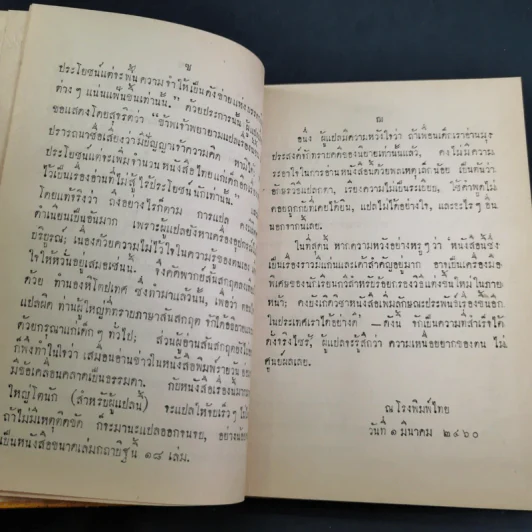 ซ
ประโยชน์แต่จะพ้นความจำให้เป็นคังข่ายแห่ง
ต่างๆ แน่นแฟ้นขึ้นเท่านั้น." ด้วยประการนั้น ผู้แปล
ขอแสดงโดยสุจริตว่า "ข้าพเจ้าพยายามแปลเรื่อง
ปรารถนาชื่อเสียงว่ามีปัญญาเจ้าความคิด หามิได้
ประโยชน์แต่จะเพิ่มจำนวนหนังสือไทยแก่เด็ก
ไว้เป็นเรื่องอ่านที่ไม่สู้ไร้ประโยชน์นักเท่านั้น.
โดยแท้จริงว่า ถึงอย่างไรก็ตาม การแปล
ดำเนียนเป็นอันมาก เพราะผู้แปลยังหาเครื่อง
บริบูรณ์; เนื่องด้วยความไม่ไว้ใจในความรู้ของตนเอง
ใจให้หวั่นอยู่เสมอเช่นนั้น. จึงคัดพากย์สันสกฤต
ด้วย ทำนองหิโตปเทศ ซึ่งทำมาแล้วนั้น, เพื่อว่า
แปลผิด ท่านผู้ใหญ่ที่ทราบภาษาสันสกฤต จักได้
ด้วยกรุณาแก่เด็กๆ ทั่วไป; ส่วนผู้อ่านสันสกฤตยังไม่
ก็พึงทำในใจว่า เสมออ่านข่าวในหนังสือพิมพ์รายวัน
มีข้อเคลื่อนคลาดเป็นธรรมดา. กับหนังสือเรื่องนี้
ใหญ่โตนัก (สำหรับผู้แปลนี้) จะแปลให้จบเร็วๆ
ถ้าไม่มีเหตุคิดขัด ก็จะมานะแปลออกจนจบ, อย่าง
เป็นหนังสือขนาดเล่มกถายิฐนี้ ๑๘ เล่ม.
ฌ
อนึ่ง ผู้แปลมีความหวังใจว่า ถ้าเพื่อนเด็กเราอ่านมุ่ง
ประสงค์จักทราบคติของนิยายเท่านั้นแล้ว, คงไม่มีความ
ระอาใจในการอ่านหนังสือนี้ด้วยพลเหตุเล็กน้อย เป็นต้นว่า:
อักษรวิธีแปลกตา, เรียงความไม่เป็นระเบียบ, ใช้คำพูดไม่
ค่อยถูกกับที่เคยได้ยิน, แปลไม่ได้อย่างใจ, และอะไรๆ อื่น
นอกจากนี้เลย.
ในที่สุดนี้ หากความหวังอย่างหรูๆ ว่า หนังสือนี้ซึ่ง
เป็นเรื่องราวมีแก่นและเค้าสำคัญอยู่มาก อาจเป็นเครื่องมือ
พิเศษของนักเรียนกวีสำหรับรอยกรองวิธีแต่งขึ้นใหม่ในภาย
หน้า; คงยังกิติวิชาหนังสือเพิ่มลักษณะประพันธ์เรื่องขึ้นอีก
ในประเทศเราได้อย่างดี — ดังนี้ จักเป็นความที่สำเร็จได้
ดังจริงไซร้, ผู้แปลจะรู้สึกว่า ความเหนื่อยยากของตน ไม่
ศูนย์ผลเลย.
ณ โรงพิมพ์ไทย
วันที่ ๑ มีนาคม ๒๔๖๐